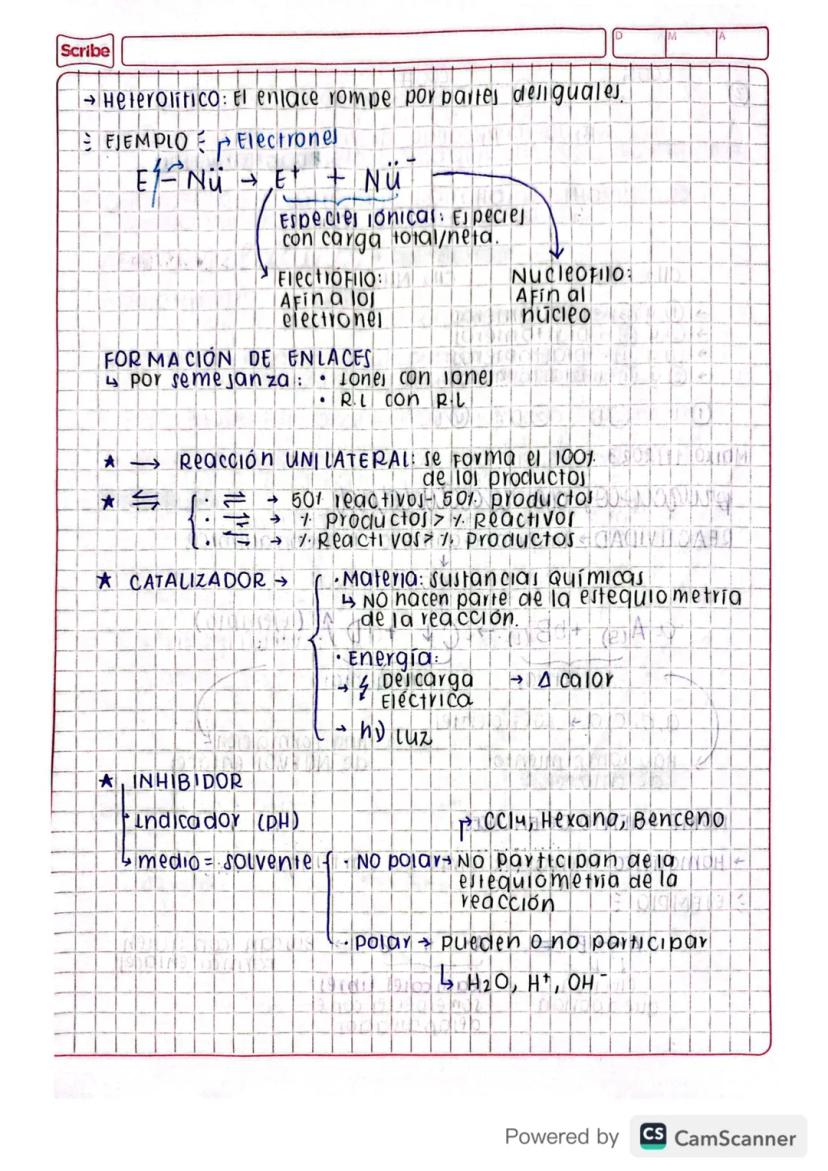 Scribe
D M A
→ Heterolítico: El enlace rompe por partes desiguales.
EJEMPLO ↱ Electrones
E – Nü → E⁺ + Nü⁻
Especies iónicas: Especies
con carga total/neta.
Electrófilo:
Afín a los
electrones
Nucleofilo:
Afín al
núcleo
FORMACIÓN DE ENLACES
↳ por semejanza: • Iones con iones
• R.L con R.L
★ → Reacción UNILATERAL: se forma el 100%
de los productos
★ ⇆ { • ⇌ → 50% reactivos - 50% productos
• ⇌ → % Productos > % Reactivos
• ⇋ → % Reactivos > % Productos
★ CATALIZADOR → { • Materia: sustancias químicas
↳ NO hacen parte de la estequiometría
de la reacción.
• Energía:
→ Descarga → Δ calor
Eléctrica
→ hν luz
★ INHIBIDOR
Indicador (pH)
↱ CCl4, Hexano, Benceno
↳ medio = solvente { • NO polar → No participan de la
estequiometría de la
reacción
• Polar → pueden o no participar
↳ H₂O, H⁺, OH⁻
Powered by CS CamScanner